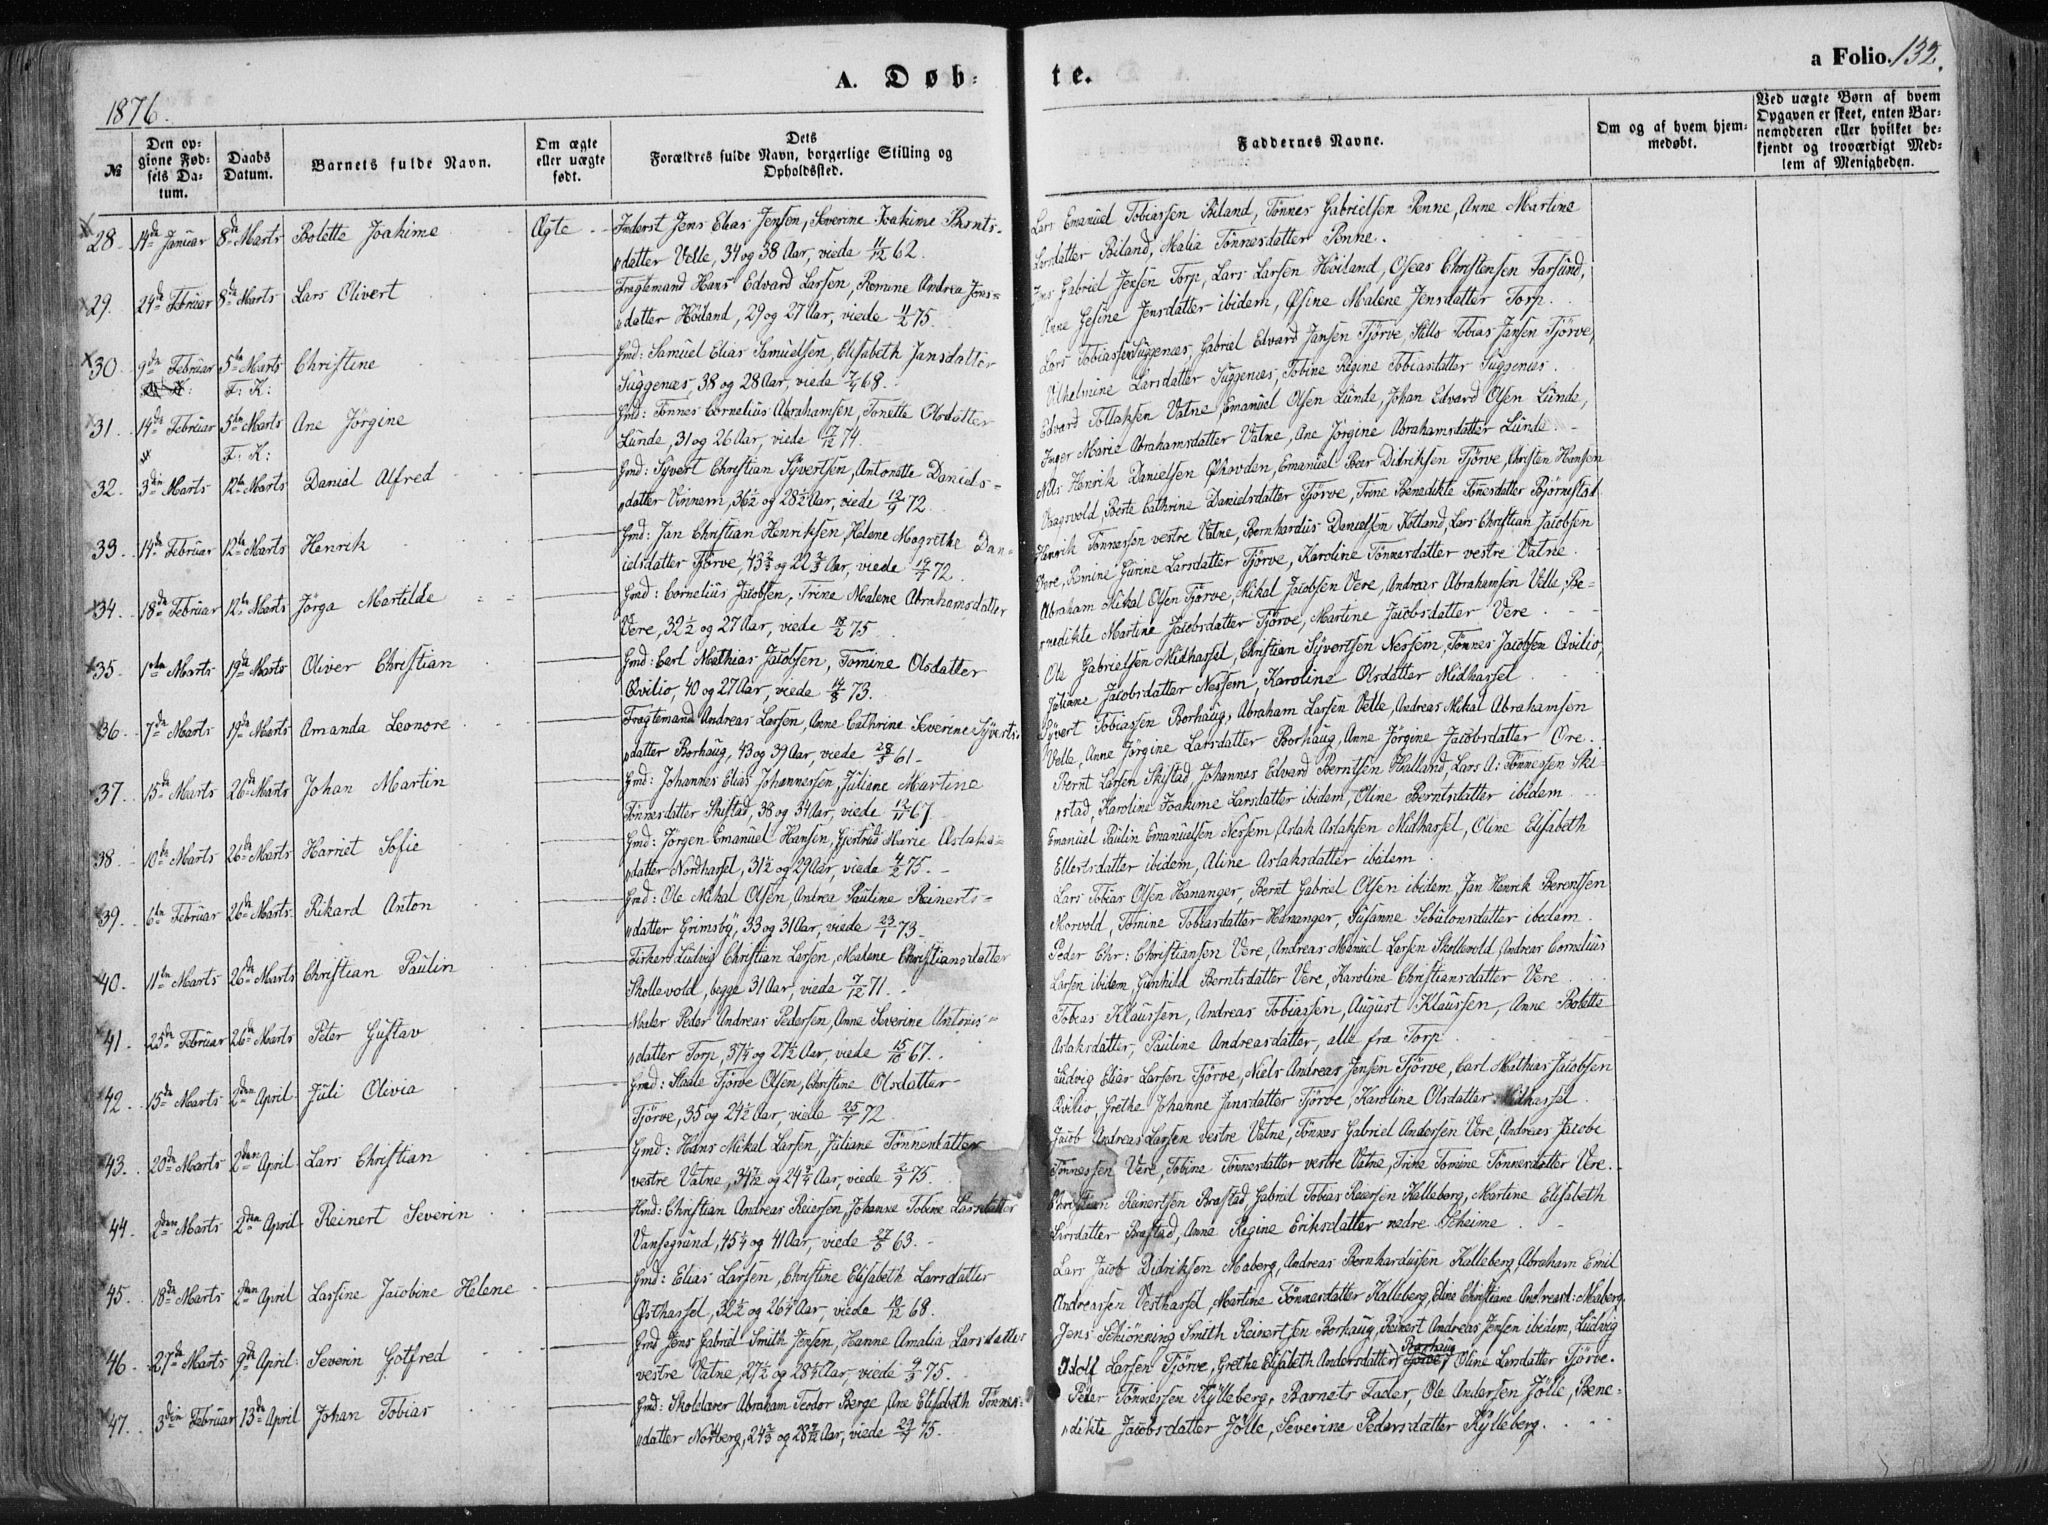 A. Døb-
te.
a Folio. 132.
1876.
№
Den op-
givne Fød-
sels Da-
tum.
Daabs
Datum.
Barnets fulde Navn.
Om ægte
eller uægte
født.
Dets
Forældres fulde Navn, borgerlige Stilling og
Opholdssted.
Faddernes Navne.
Om og af hvem hjem-
medøbt.
Ved uægte Børn af hvem
Opgaven er skeet, enten Bar-
nemoderen eller hvilket be-
kjendt og troværdigt Med-
lem af Menigheden.
28. 14de Januar 8de Marts Bolette Joakime Ægte Inderst Jens Elias Jensen, Severine Joakime Bernts-
datter Velle, 34 og 38 Aar, viede 11/12 62.
Lars Emanuel Tobiassen Biland, Tönnes Gabrielsen Penne, Anne Martine
Larsdatter Biland, Malia Tönnesdatter Penne.
29. 24de Februar 8de Marts Lars Olivert Fragtemand Hans Edvard Larsen, Romine Andrea Jens-
datter Höiland, 29 og 27 Aar, viede 4/2 75.
Jens Gabriel Jensen Torp, Lars Larsen Höiland, Oseas Christensen Farsund,
Anne Gesine Jensdatter ibidem, Øsine Malene Jensdatter Torp.
30. 9de Februar 5te Marts Christine Gmd: Samuel Elias Samuelsen, Elisabeth Jansdatter
F: K: Suggenæs, 38 og 28 Aar, viede 7/4 68.
Lars Tobiassen Suggenæs, Gabriel Edvard Jansen Tjörve, Nills Tobias Jansen Tjörve,
Vilhelmine Larsdatter Suggenæs, Tobine Regine Tobiasdatter Suggenæs.
31. 14de Februar 5te Marts Ane Jörgine Gmd: Tönnes Cornelius Abrahamsen, Tonette Olsdatter
F: K: Lunde, 31 og 26 Aar, viede 17/12 74.
Edvard Tollaksen Vatne, Emanuel Olsen Lunde, Johan Edvard Olsen Lunde,
Inger Marie Abrahamsdatter Vatne, Ane Jörgine Abrahamsdatter Lunde.
32. 3die Marts 12te Marts Daniel Alfred Gmd: Syvert Christian Syvertsen, Antonette Daniels-
datter Vinnem, 36½ og 28½ Aar, viede 12/9 72.
Nils Henrik Danielsen Øhovden, Emanuel Beer Didriksen Tjörve, Christen Hansen
Vaagsvold, Berte Cathrine Danielsdatter Tjörve, Trine Benedikte Tönesdatter Björnestad
33. 14de Februar 12te Marts Henrik Gmd: Jan Christian Henriksen Helene Magrethe Dan-
ielsdatter Tjörve, 43⅔ og 22⅔ Aar, viede 19/7 72.
Henrik Tönnessen vestre Vatne, Bernhardus Danielsen Kotland, Lars Christian Jacobsen
Vere, Romine Gurine Larsdatter Tjörve, Karoline Tönnesdatter vestre Vatne.
34. 18de Februar 12te Marts Jörga Martilde Gmd: Cornelius Jacobsen, Trine Malene Abrahamsdatter
Vere, 32½ og 27 Aar, viede 18/2 75
Abraham Mikal Olsen Tjörve, Mikal Jacobsen Vere, Andreas Abrahamsen Velle, Be-
nedikte Martine Jacobsdatter Tjörve, Martine Jacobsdatter Vere
35. 1ste Marts 19de Marts Oliver Christian Gmd: Carl Mathias Jacobsen, Tomine Olsdatter
Qvilio, 40 og 27 Aar, viede 14/8 73.
Ole Gabrielsen Midhassel, Christian Syvertsen Nessem, Tönnes Jacobsen Qvilio,
Juliane Jacobsdatter Nessem, Karoline Olsdatter Midhassel
36. 7de Marts 19de Marts Amanda Leonore Fragtemand Andreas Larsen, Anne Cathrine Severine Syverts-
datter Borhaug, 43 og 39 Aar, viede 28/3 61.
Syvert Tobiassen Borhaug, Abraham Larsen Velle, Andreas Mikal Abrahamsen
Velle, Anne Jörgine Larsdatter Borhaug, Anne Jörgine Jacobsdatter Øre.
37. 15de Marts 26de Marts Johan Martin Gmd: Johannes Elias Johannessen, Juliane Martine
Tönnesdatter Skistad, 38 og 34 Aar, viede 12/11 67
Bernt Larsen Skistad, Johannes Edvard Berntsen Halland, Lars A: Tönnessen Ski-
stad, Karoline Joakime Larsdatter ibidem, Oline Berntsdatter ibidem
38. 10de Marts 26de Marts Harriet Sofie Gmd: Jörgen Emanuel Hansen, Gjertrud Marie Aslaks-
datter Nordhassel, 31½ og 29 Aar, viede 4/2 75.
Emanuel Paulin Emanuelsen Nessem, Aslak Aslaksen Midhassel, Oline Elisabeth
Ellertsdatter ibidem, Aline Aslaksdatter ibidem.
39. 6te Februar 26de Marts Rikard Anton Gmd: Ole Mikal Olsen, Andrea Pauline Reinerts-
datter Grimsby, 33 og 31 Aar, viede 23/1 73.
Lars Tobias Olsen Hananger, Bernt Gabriel Olsen ibidem, Jan Henrik Berentsen
Morvold, Tomine Tobiasdatter Hananger, Susanne Sebulonsdatter ibedem.
40. 11te Marts 26de Marts Christian Paulin Fisker Ludvig Christian Larsen, Malene Christiansdatter
Skollevold, begge 31 Aar, viede 7/12 71.
Peder Chr: Christiansen Vere, Andreas Manuel Larsen Skollevold, Andreas Cornelius
Larsen ibidem, Gunhild Berntsdatter Vere, Karoline Christiansdatter Vere
41. 25de Februar 26de Marts Peter Gustav Maler Peder Andreas Pedersen, Anne Severine Antonis-
datter Torp, 37¼ og 27½ Aar, viede 15/10 67.
Tobias Klaussen, Andreas Tobiassen, August Klaussen, Anne Bolette
Aslaksdatter, Pauline Andreasdatter, alle fra Torp
42. 15de Marts 2den April Juli Olivia Gmd: Staale Tjörve Olsen, Christine Olsdatter
Tjörve, 35 og 24½ Aar, viede 25/7 72.
Ludvig Elias Larsen Tjörve, Niels Andreas Jensen Tjörve, Carl Mathias Jacobsen
Qvilio, Grethe Johanne Jansdatter Tjörve, Karoline Olsdatter Midhassel.
43. 20de Marts 2den April Lars Christian Gmd: Hans Mikal Larsen, Juliane Tönnesdatter
vestre Vatne, 34 og 24 Aar, viede 2/9 75.
Jacob Andreas Larsen vestre Vatne, Tönnes Gabriel Andersen Vere, Andreas Jacobe
Tönnessen Vere, Tobine Tönnesdatter vestre Vatne, Trine Tomine Tönnesdatter Vere.
44. 2den Marts 2den April Reinert Severin Hmd: Christian Andreas Reiersen, Johanne Tobine Larsdatter
Vansegrund, 45¼ og 41 Aar, viede 27/5 63.
Christian Reinertsen Brastad, Gabriel Tobias Reiersen Kalleberg, Martine Elisabeth
Larsdatter Brastad, Anne Regine Eriksdatter nedre Scheime
45. 18de Marts 2den April Larsine Jacobine Helene Gmd: Elias Larsen, Christine Elisabeth Larsdatter
Østhassel, 32½ og 26¼ Aar, viede 10/12 68.
Lars Jacob Didriksen Maberg, Andreas Bernhardussen Kalleberg, Abraham Emil
Andreassen Vesthassel, Martine Tönnesdatter Kalleberg, Eline Christiane Andreasd: Maberg,
46. 27de Marts 9de April Severin Gotfred Gmd Jens Gabriel Smith Jensen, Hanne Amalia Larsdatter
vestre Vatne, 27½ og 28¼ Aar, viede 9/3 75.
Jens Schiønning Smith Reinertsen Borhaug, Reinert Andreas Jensen ibidem, Ludvig
Adolf Larsen Tjörve, Grethe Elisabeth Andersdatter Borhaug, Oline Larsdatter Tjörve.
47. 3die Februar 13de April Johan Tobias Gmd: Skolelærer Abraham Teodor Berge, Ane Elisabeth Tönnes-
datter Norberg, 24⅔ og 28 Aar, viede 29/7 75.
Peder Tönnessen Kylleberg, Barnets Fader, Ole Andersen Jölle, Bene-
dikte Jacobsdatter Jölle, Severine Pedersdatter Kylleberg.